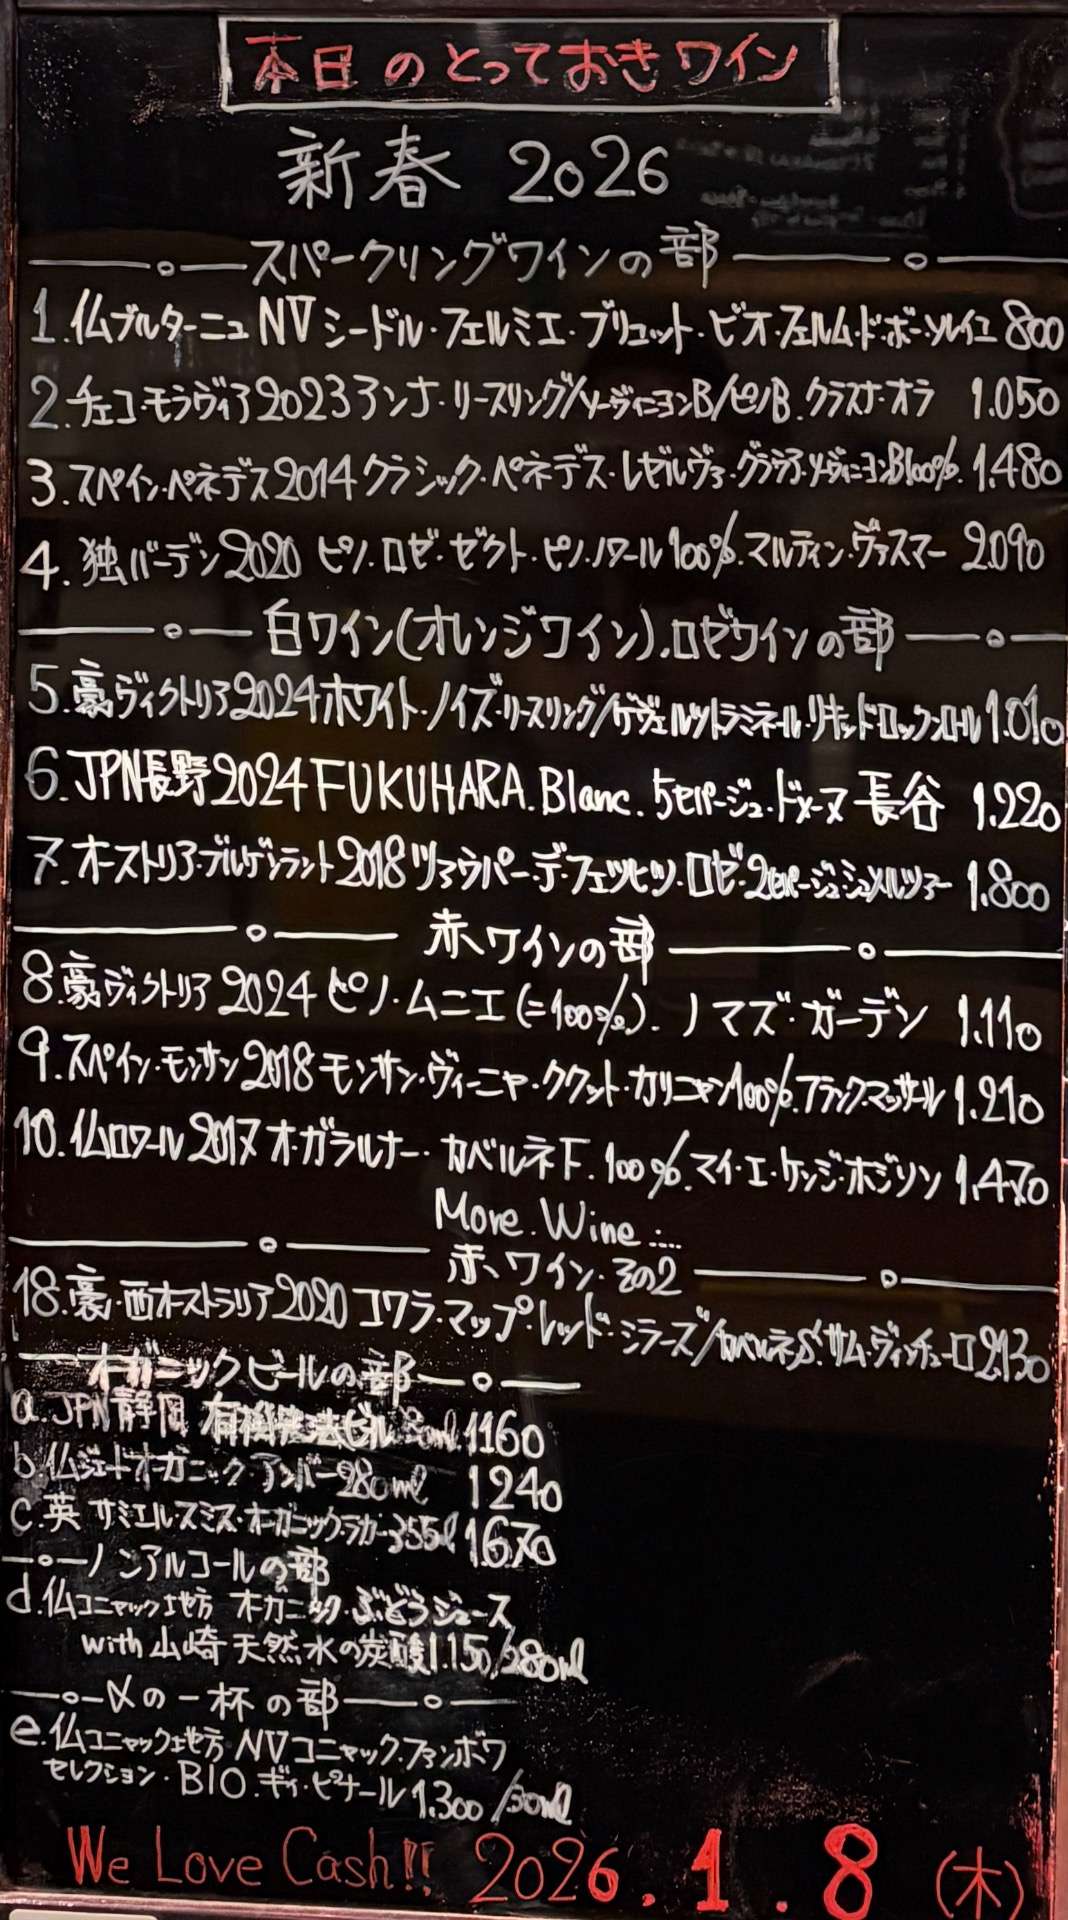 本日のとっておきワイン
新春 2026
スパークリングワインの部
1.仏ブルターニュ NV シードル・フェルミエ・ブリュット・ビオ・フェルム・ド・ボー・ソレイユ 800
2.チェコ・モラヴィア2023アンナ・リースリング/ソーヴィニヨンB/ピノB.クラスナ・オラ 1.050
3.スペイン・ペネデス2014クラシック・ペネデス・レゼルヴァ・グラウラ・ソーヴィニヨンB100%.1.480
4.独バーデン2020 ピノ・ロゼ・ゼクト・ピノ・ノワール100%.マルティン・ヴァスマー 2.090
白ワイン(オレンジワイン).ロゼワインの部
5.豪ヴィクトリア2024ホワイト・ノイズ・リースリング/ゲヴュルツトラミネール・リキッドロックンロール1.010
6.JPN長野2024 FUKUHARA.Blanc.5セパージュ・ドメーヌ 長谷 1.220
7.オーストリア・ブルゲンラント2018ツァウバー・デ・フェツヒツ・ロゼ・2セパージュシュメルツァー 1.800
赤ワインの部
8.豪ヴィクトリア2024 ピノ・ムニエ(=100%).ノマズ・ガーデン 1.110
9.スペイン・モンサン2018モンサン・ヴィーニャ・ククット・カリニャン100%.フランク・マッサール 1.210
10.仏ロワール2017オ・ガラルナー・カベルネF.100%.マイ・エ・ケンジ・ホジソン 1.470
More.Wine....
赤ワイン・その2
18.豪・西オーストラリア2020コワラ・マップ・レッド・シラーズ/カベルネS.サム・ヴィンチューロ2.130
オーガニックビールの部
a.JPN静岡 有機 ビール ml 1160
b.仏ジェードオーガニックアンバー280ml 1240
c.英 サミエルスミス・オーガニック・ラガー355ml 1.670
ノンアルコールの部
d.仏コニャック地方 オーガニック・ぶどうジュース
with山崎天然水の炭酸1.150/280ml
〆の一杯の部
e.仏コニャック地方 NV コニャック・ファンボワ
セレクション・BIO.ギィ・ピナール1.300/30ml
We Love Cash!! 2026.1.8(木)